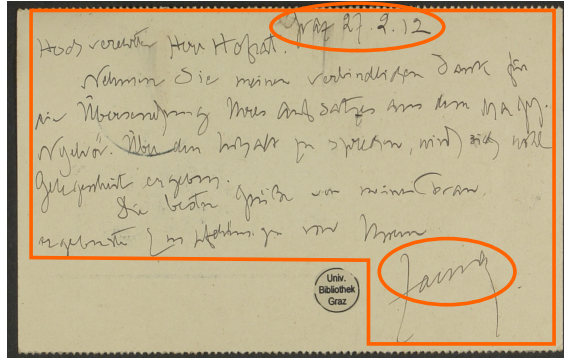 Graz 27.2.12
Hochverehrter Herr Hofrat.
Nehmen Sie meinen verbindlichen Dank für
die Übersendung Ihres Aufsatzes aus dem Magy.
Nyelvőr. Über den Inhalt zu sprechen, wird sich wohl
Gelegenheit ergeben.
Die besten Grüße von meiner Frau.
ergebenste von Ihrem
Univ.
Bibliothek
Graz